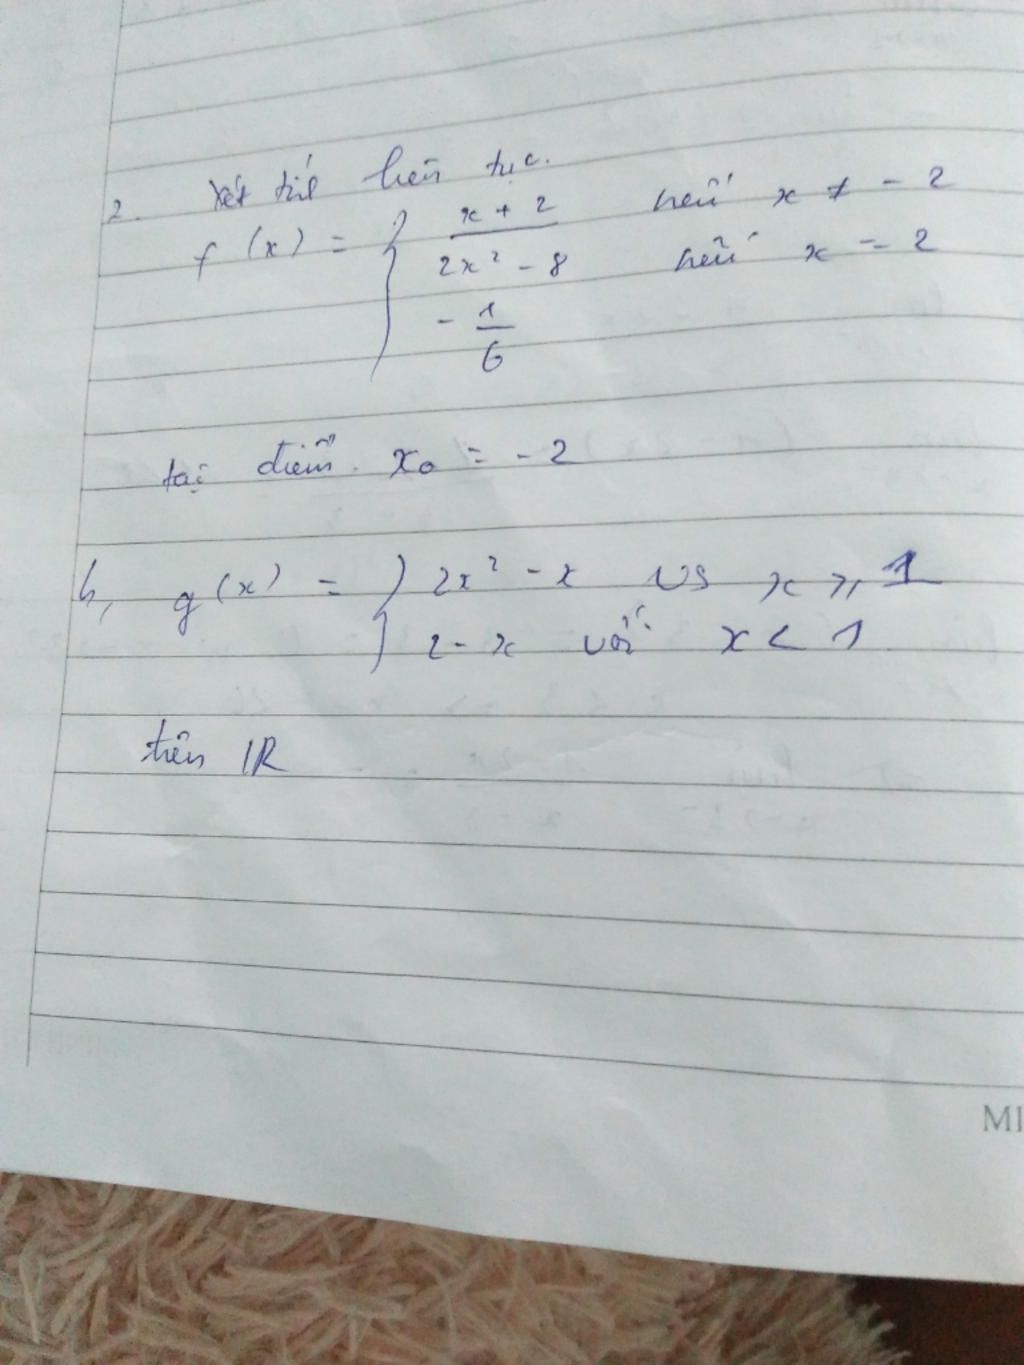 2. Xét tính liên tục.
f(x) = { x + 2 / 2x² - 8 nếu x ≠ -2
- 1/6 nếu x = -2
tại điểm x₀ = -2
b, g(x) = { 2x² - x vs x ≥ 1
2 - x với x < 1
trên IR
MI